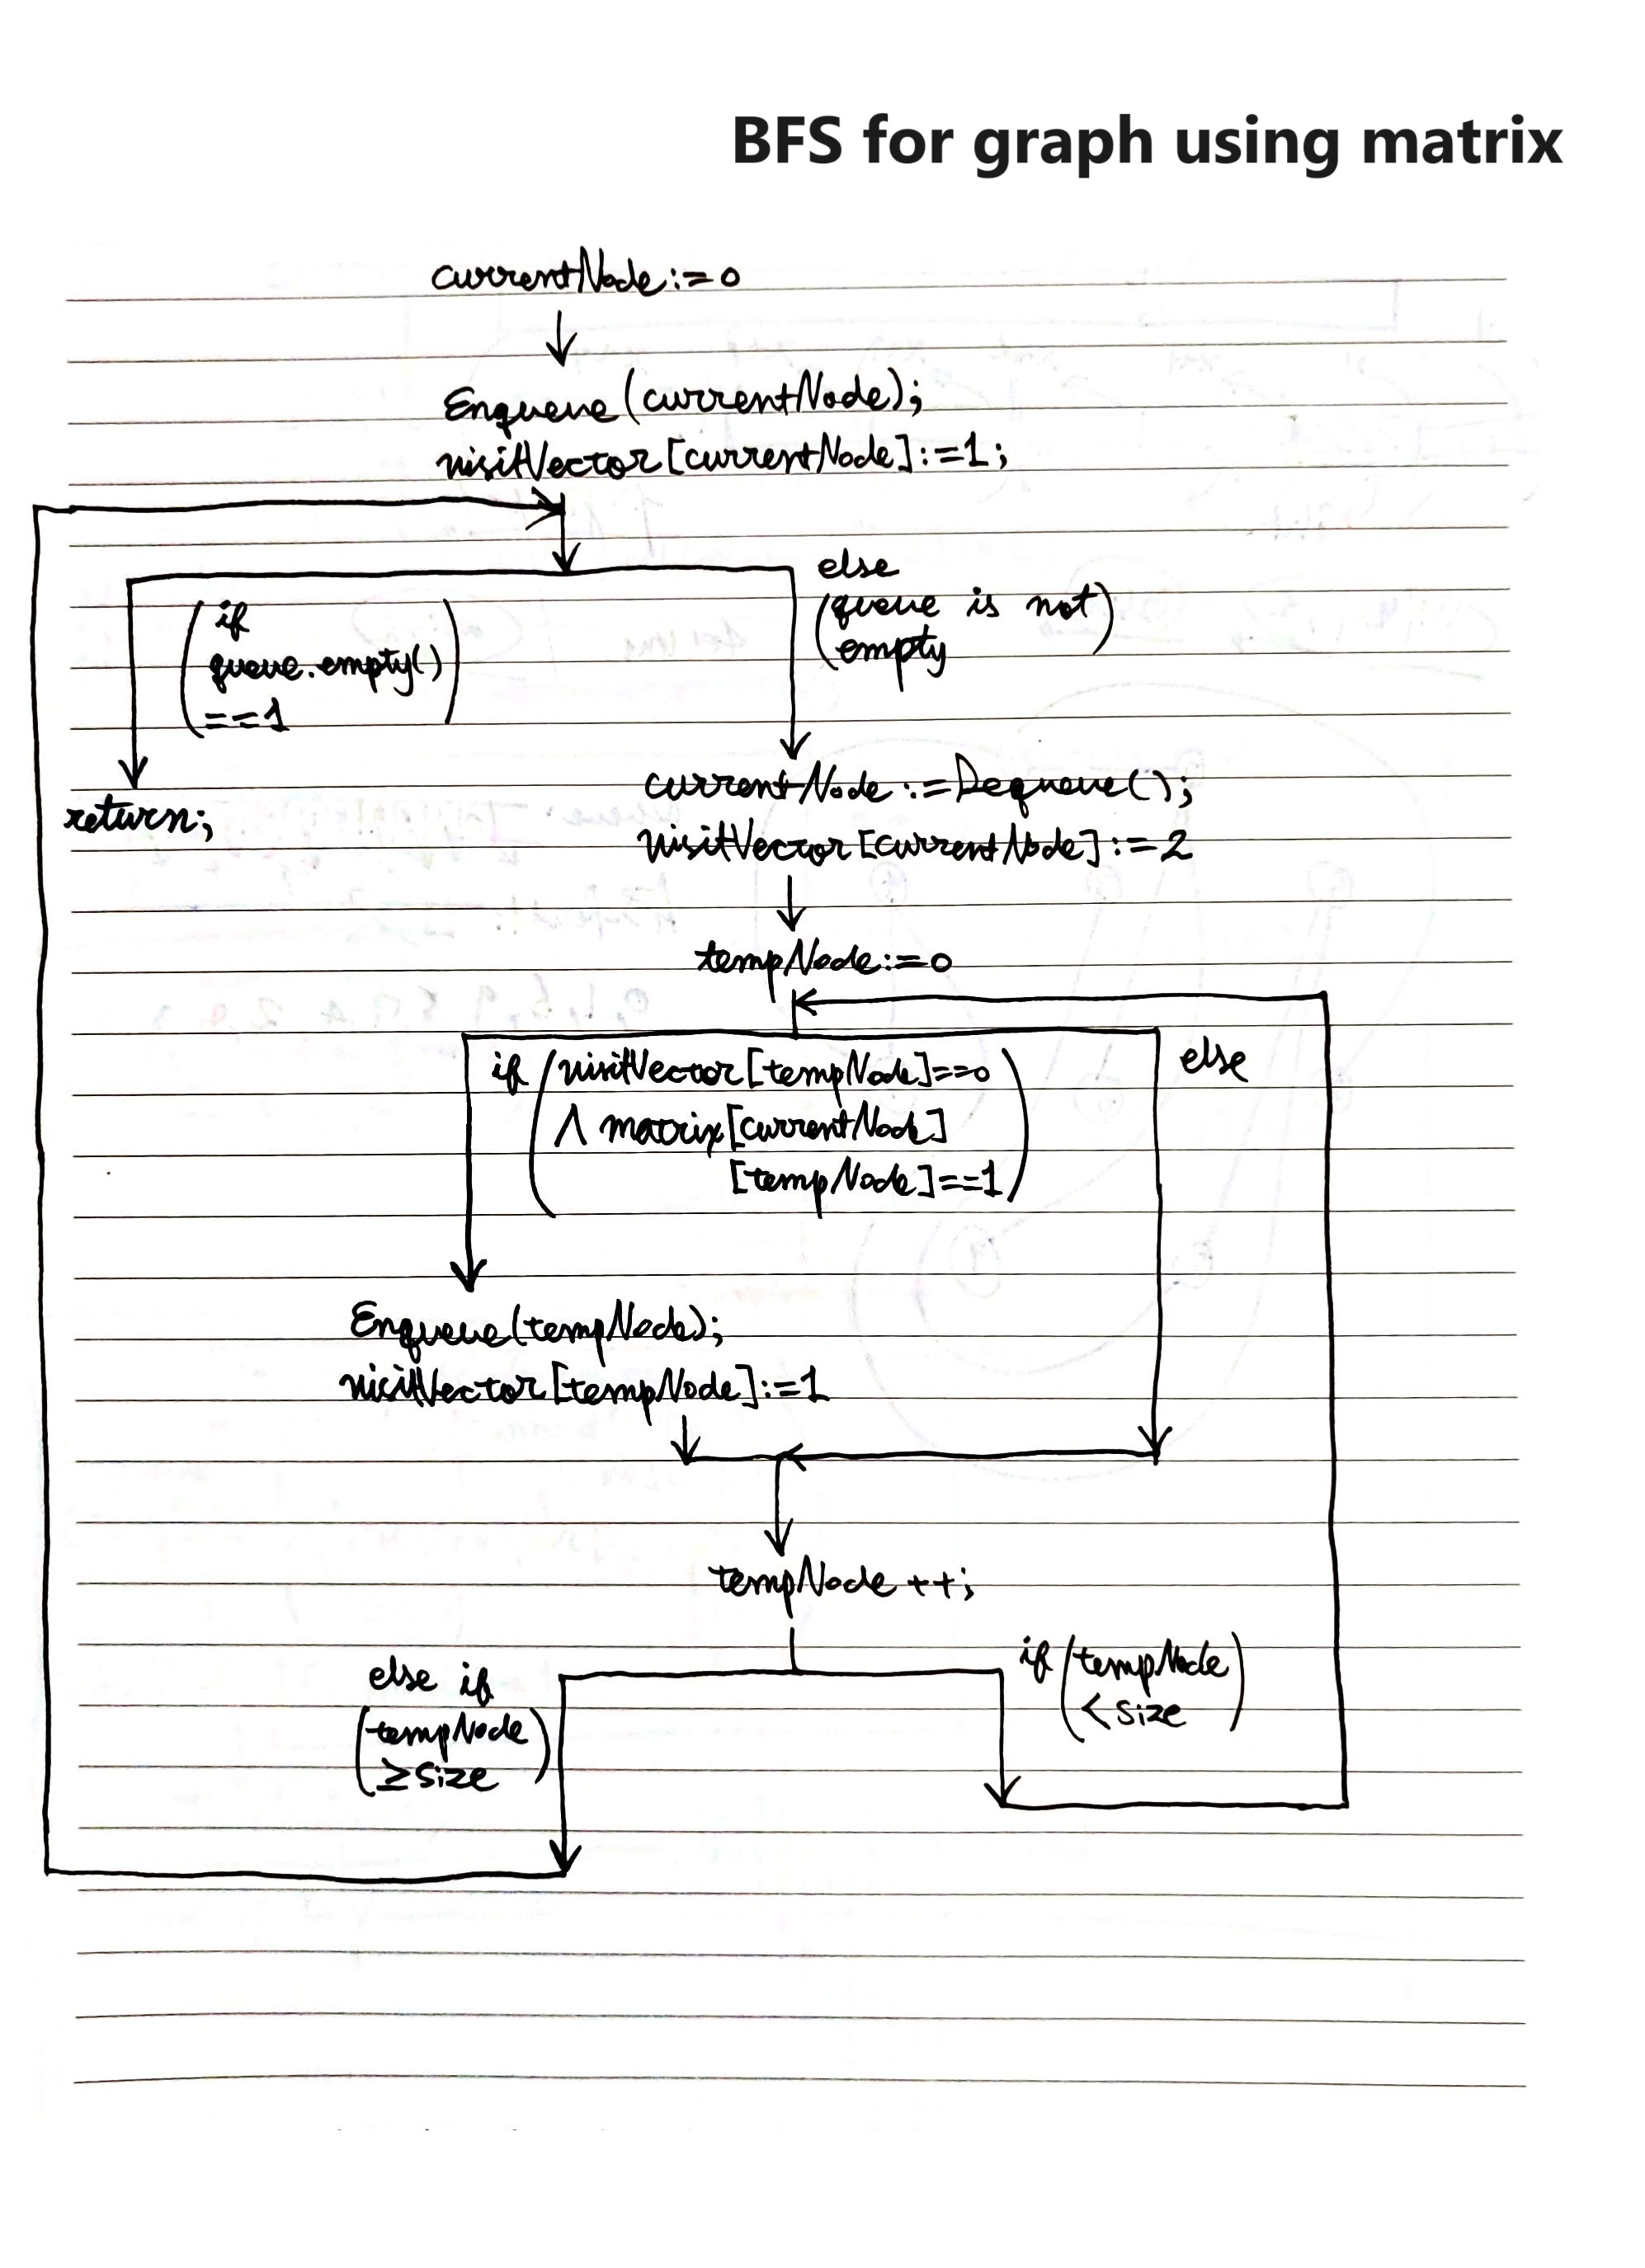 BFS for graph using matrix
currentNode:=0
Enqueue(currentNode);
visitVector[currentNode]:=1;
else
(queue is not)
empty
if
queue.empty()
==1
return;
currentNode:=Dequeue();
visitVector[currentNode]:=2
tempNode:=0
if (visitVector[tempNode]==0
∧ matrix[currentNode]
[tempNode]==1)
else
Enqueue(tempNode);
visitVector[tempNode]:=1
tempNode++;
if (tempNode
<size)
else if
(tempNode
≥size)